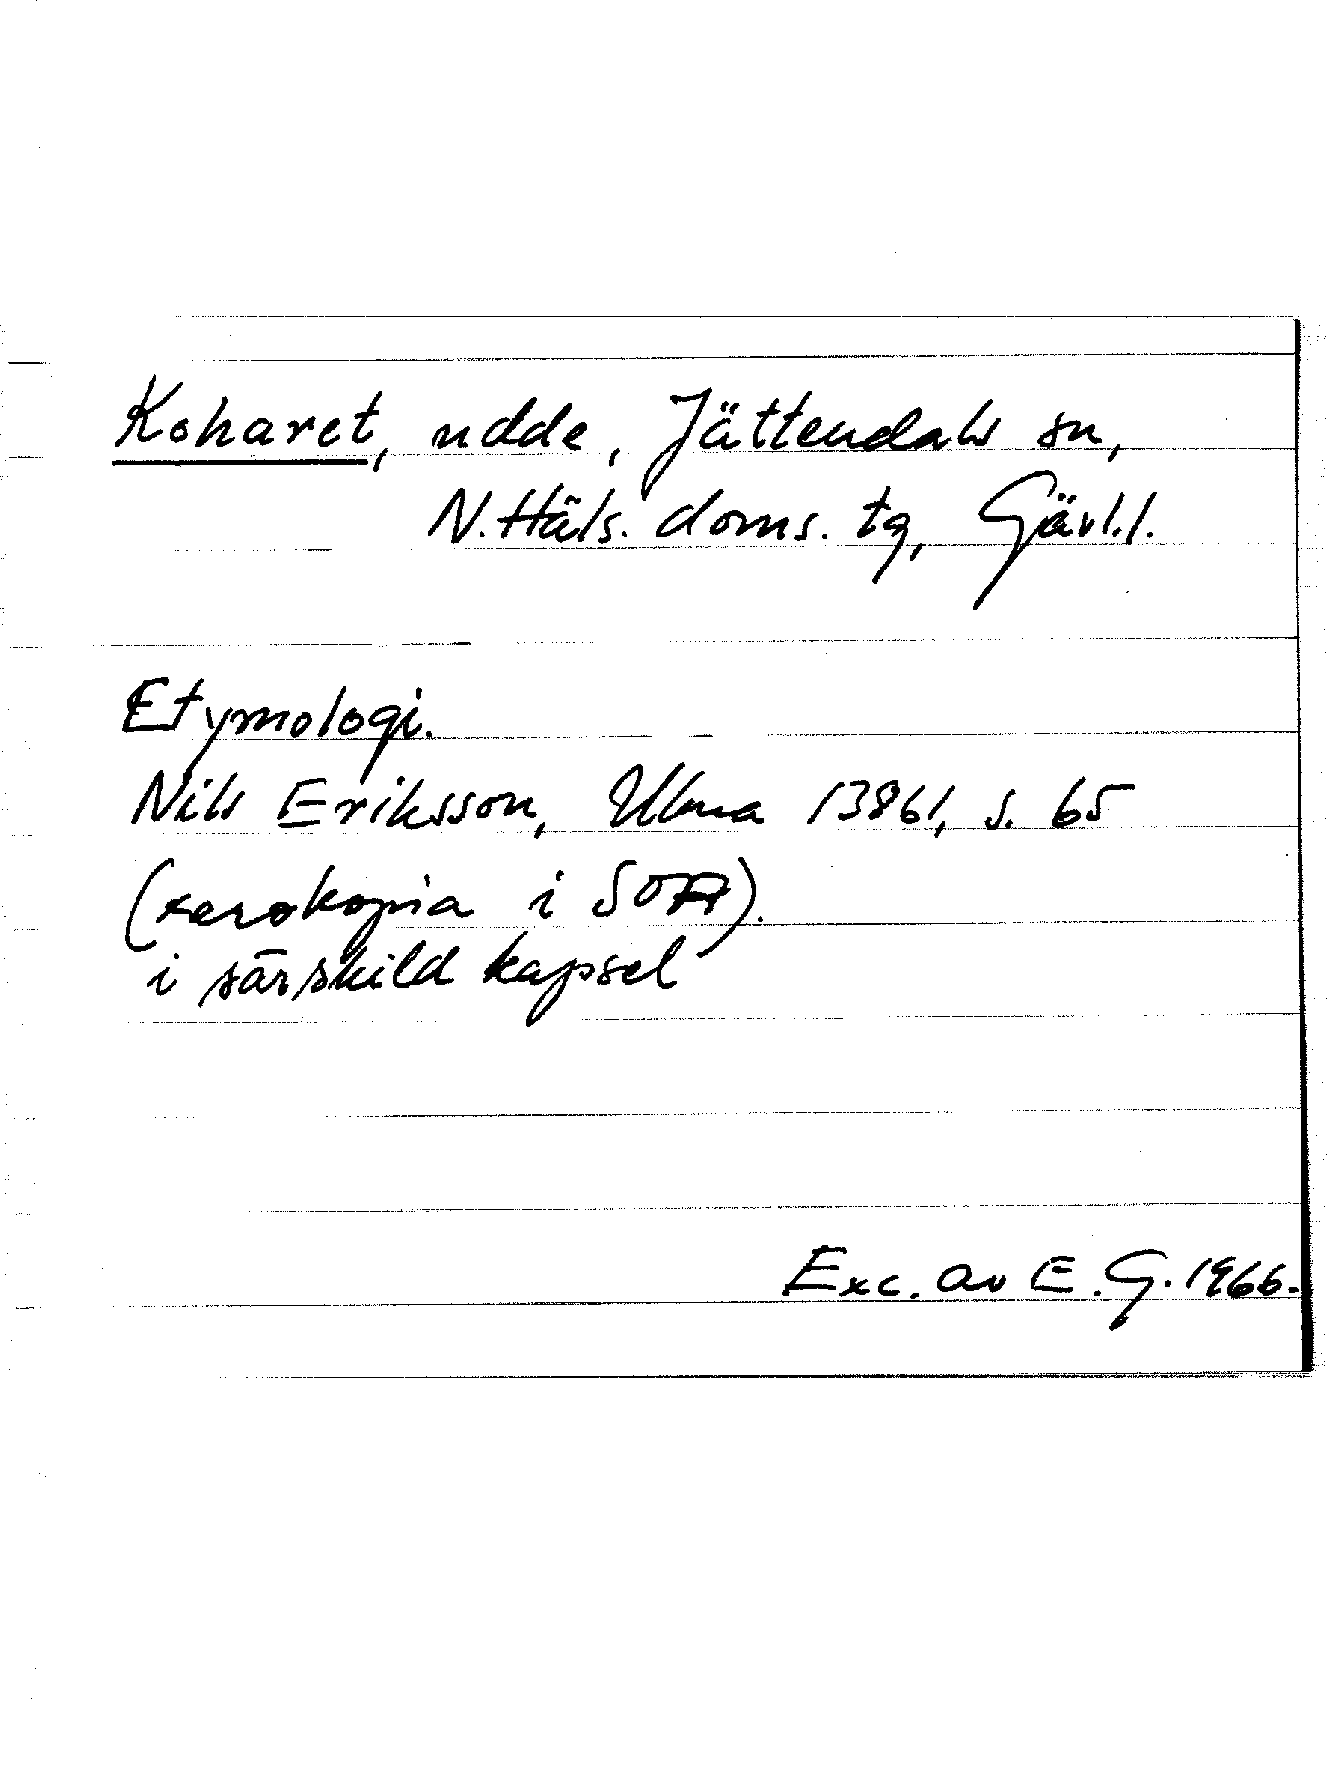 Koharet, udde, Jättendals sn,
N. Häls. doms. tg, Gävl.l.
Etymologi.
Nils Eriksson, Ulma 13861, s. 65
(xerokopia i SOA).
i särskild kapsel
Exc. av E. G. 1966.